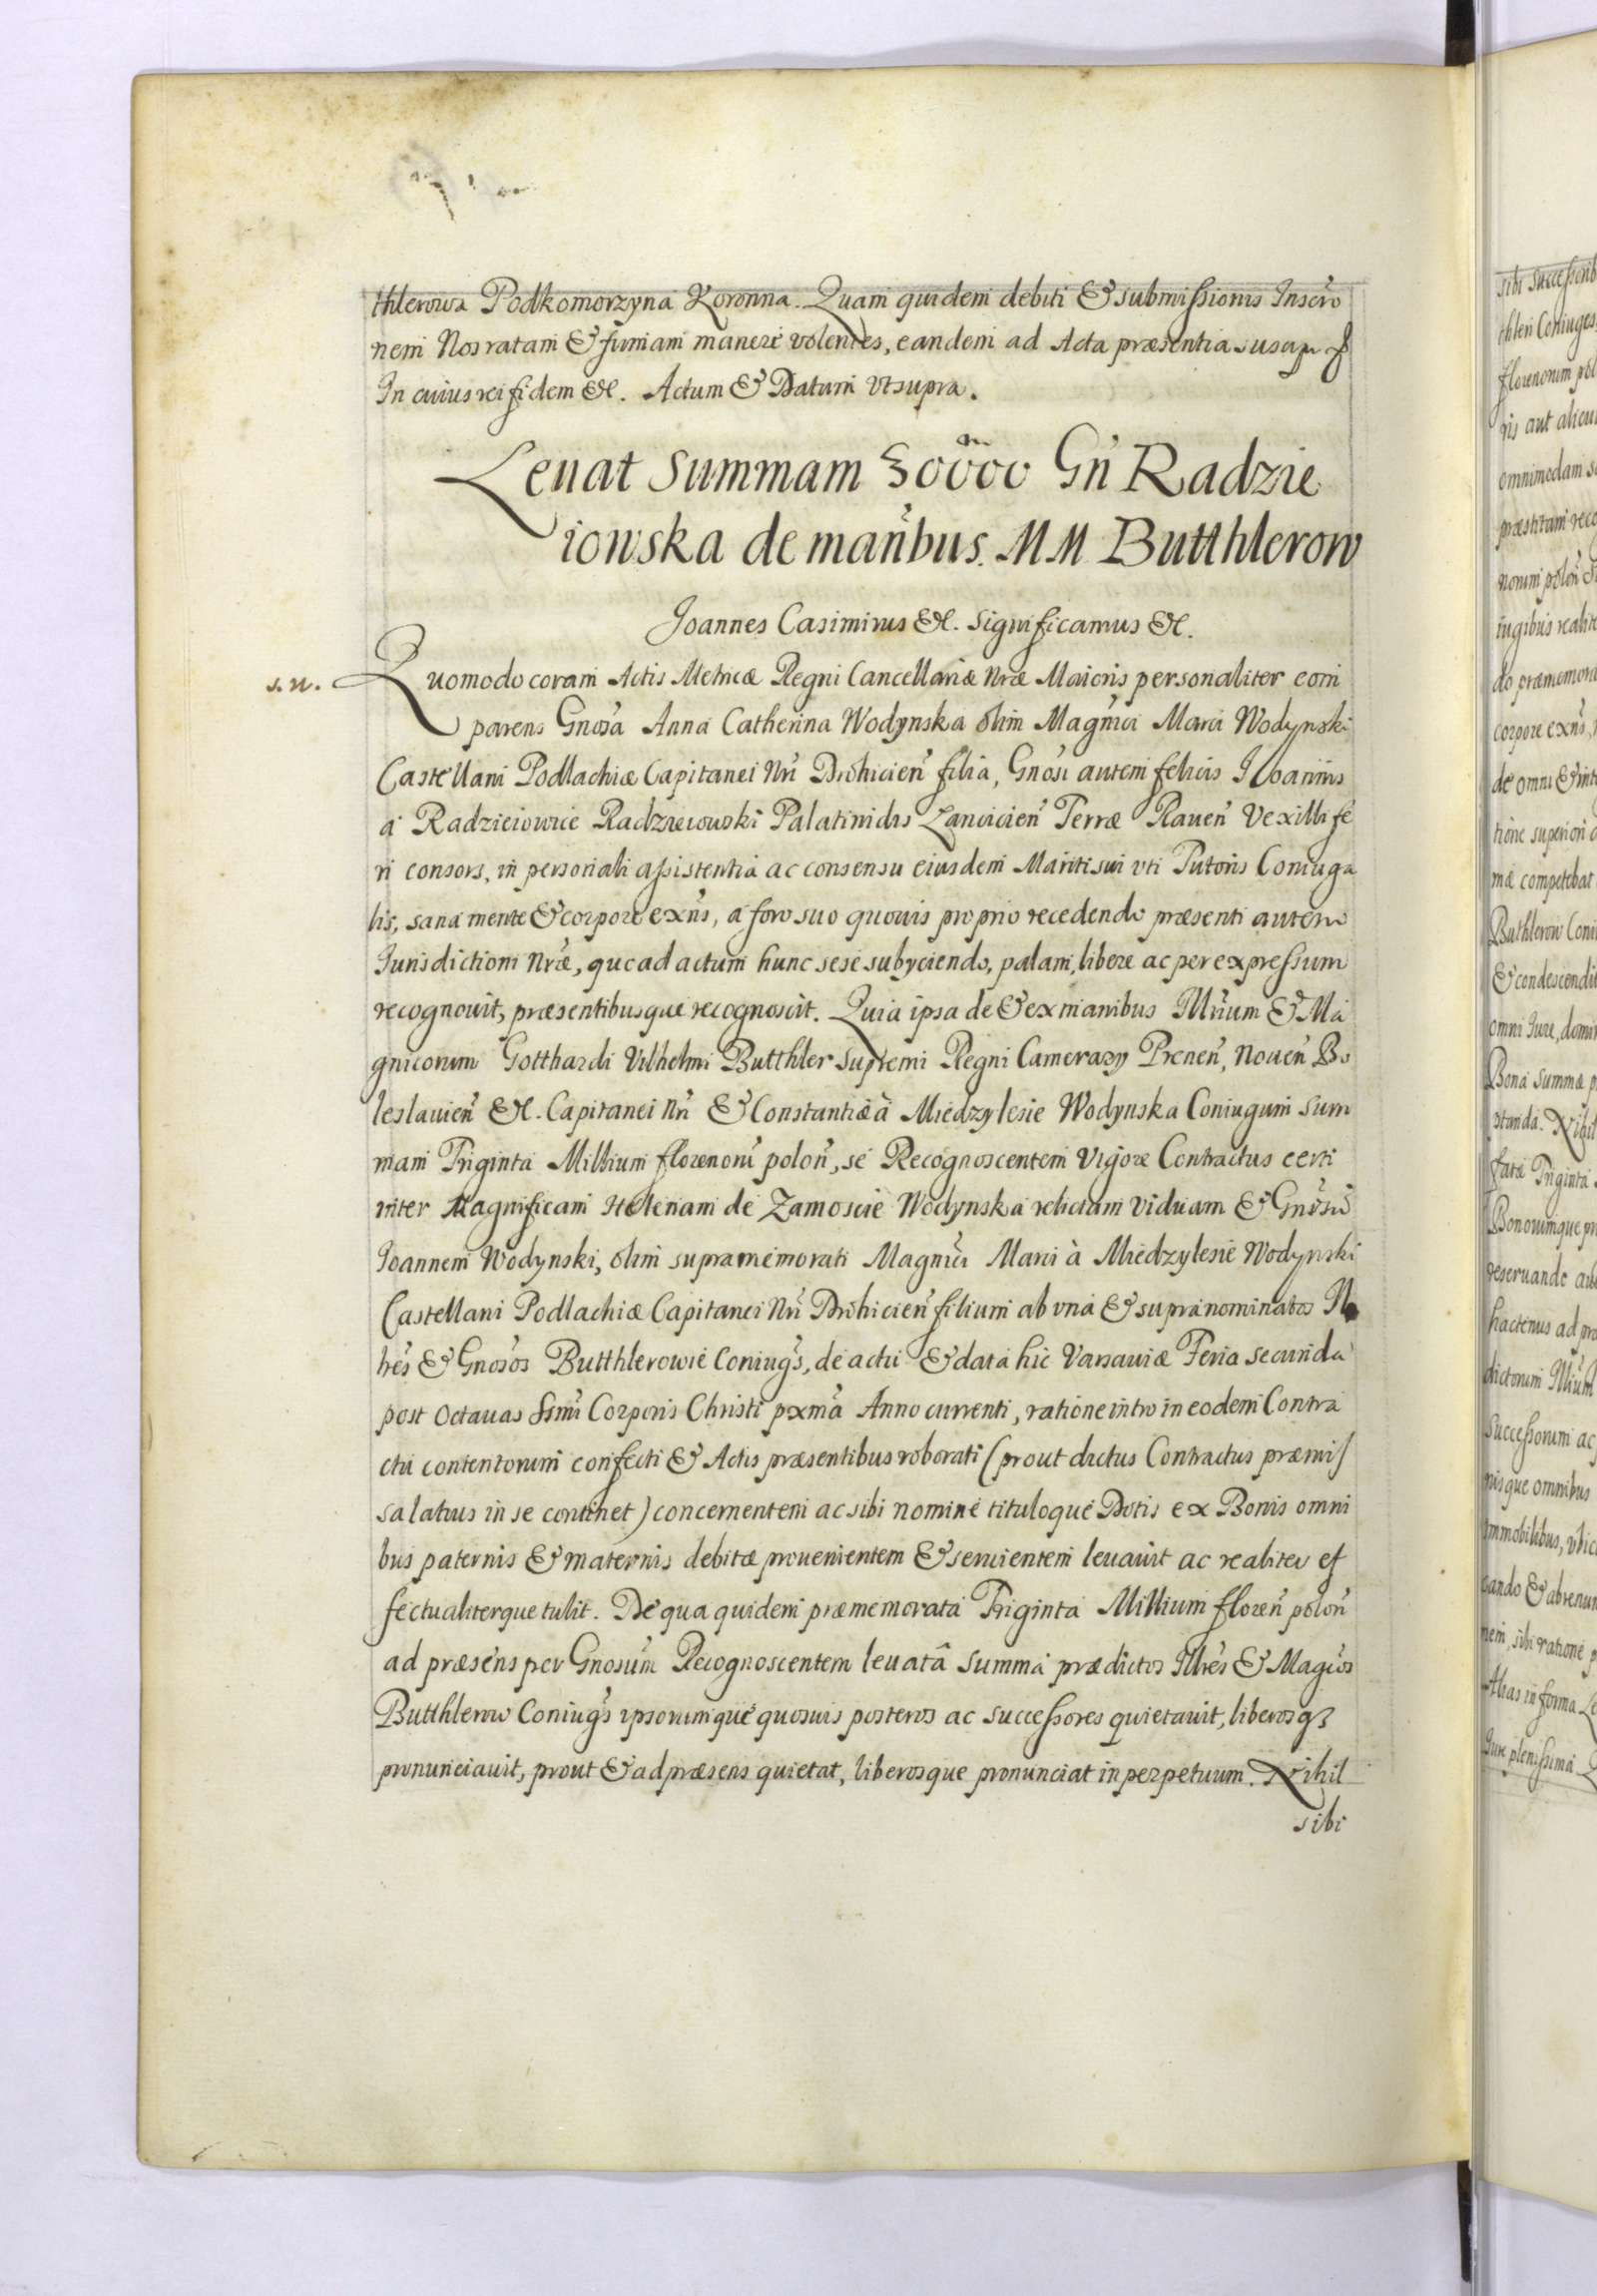 thlerowa Podkomorzyna Koronna. Quam quidem debiti & submissionis Inscro
nem Nos ratam & firmam manere volentes, eandem ad Acta præsentia suscep
In cuius rei fidem &c. Actum & Datum vt supra.
Leuat Summam 30000 Gn Radzie
iowska de manbus. MM Butthlerow
Joannes Casimirus &c. Significamus &c.
s. n. Quomodo coram Actis Metricæ Regni Cancellariæ Nræ Maioris personaliter com
parens Gnosa Anna Catherina Wodynska olim Magnici Marci Wodynski
Castellani Podlachiæ Capitanei Nri Drohicien filia, Gnosi autem felicis Joannis
a Radzieiowice Radzieiowski Palatinidis Lancicien Terræ Rauen Vexillife
ri consors, in personali assistentia ac consensu eiusdem Mariti sui vti Tutoris Coniuga
lis, sana mente & corpore exns, a foro suo quouis proprio recedendo præsenti autem
Jurisdictioni Nræ, quo ad actum hunc sese subyciendo, palam, libere ac per expressum
recognouit, præsentibusque recognoscit. Quia ipsa de & ex manibus Illrium & Ma
gnicorum Gotthardi Vilhelmi Butthler Supremi Regni Camerary Prenen, Nouen Bo
leslauien &c. Capitanei Nri & Constantiæ à Miedzylesie Wodynska Coniugum sum
mam Triginta Millium florenoru polon, se Recognoscentem Vigore Contractus certi
inter Magnificam Helenam de Zamoscie Wodynska relictam viduam & Gnosu
Joannem Wodynski, olim supramemorati Magnici Marci à Miedzylesie Wodynski
Castellani Podlachiæ Capitanei Nri Drohicien filium ab vna & supranominatos Il
lres & Gnosos Butthlerowie Coniugs, de actu & data hic Varsauiæ Feria secunda
post Octauas Ssmi Corporis Christi pxma Anno currenti, ratione intro in eodem Contra
ctu contentorum confecti & Actis præsentibus roborati (prout dictus Contractus præmis
sa latius in se continet) concernentem ac sibi nomine tituloque Dotis ex Bonis omni
bus paternis & maternis debitæ prouenientem & seruientem leuauit ac realiter ef
fectualiterque tulit. De qua quidem præmemorata Triginta Millium floren polon
ad præsens per Gnosum Recognoscentem leuatâ summa prædictos Illres & Magcos
Butthlerow Coniugs ipsorumque quosuis posteros ac successores quietauit, liberosq3
pronunciauit, prout & ad præsens quietat, liberosque pronunciat in perpetuum. Nihil
sibi